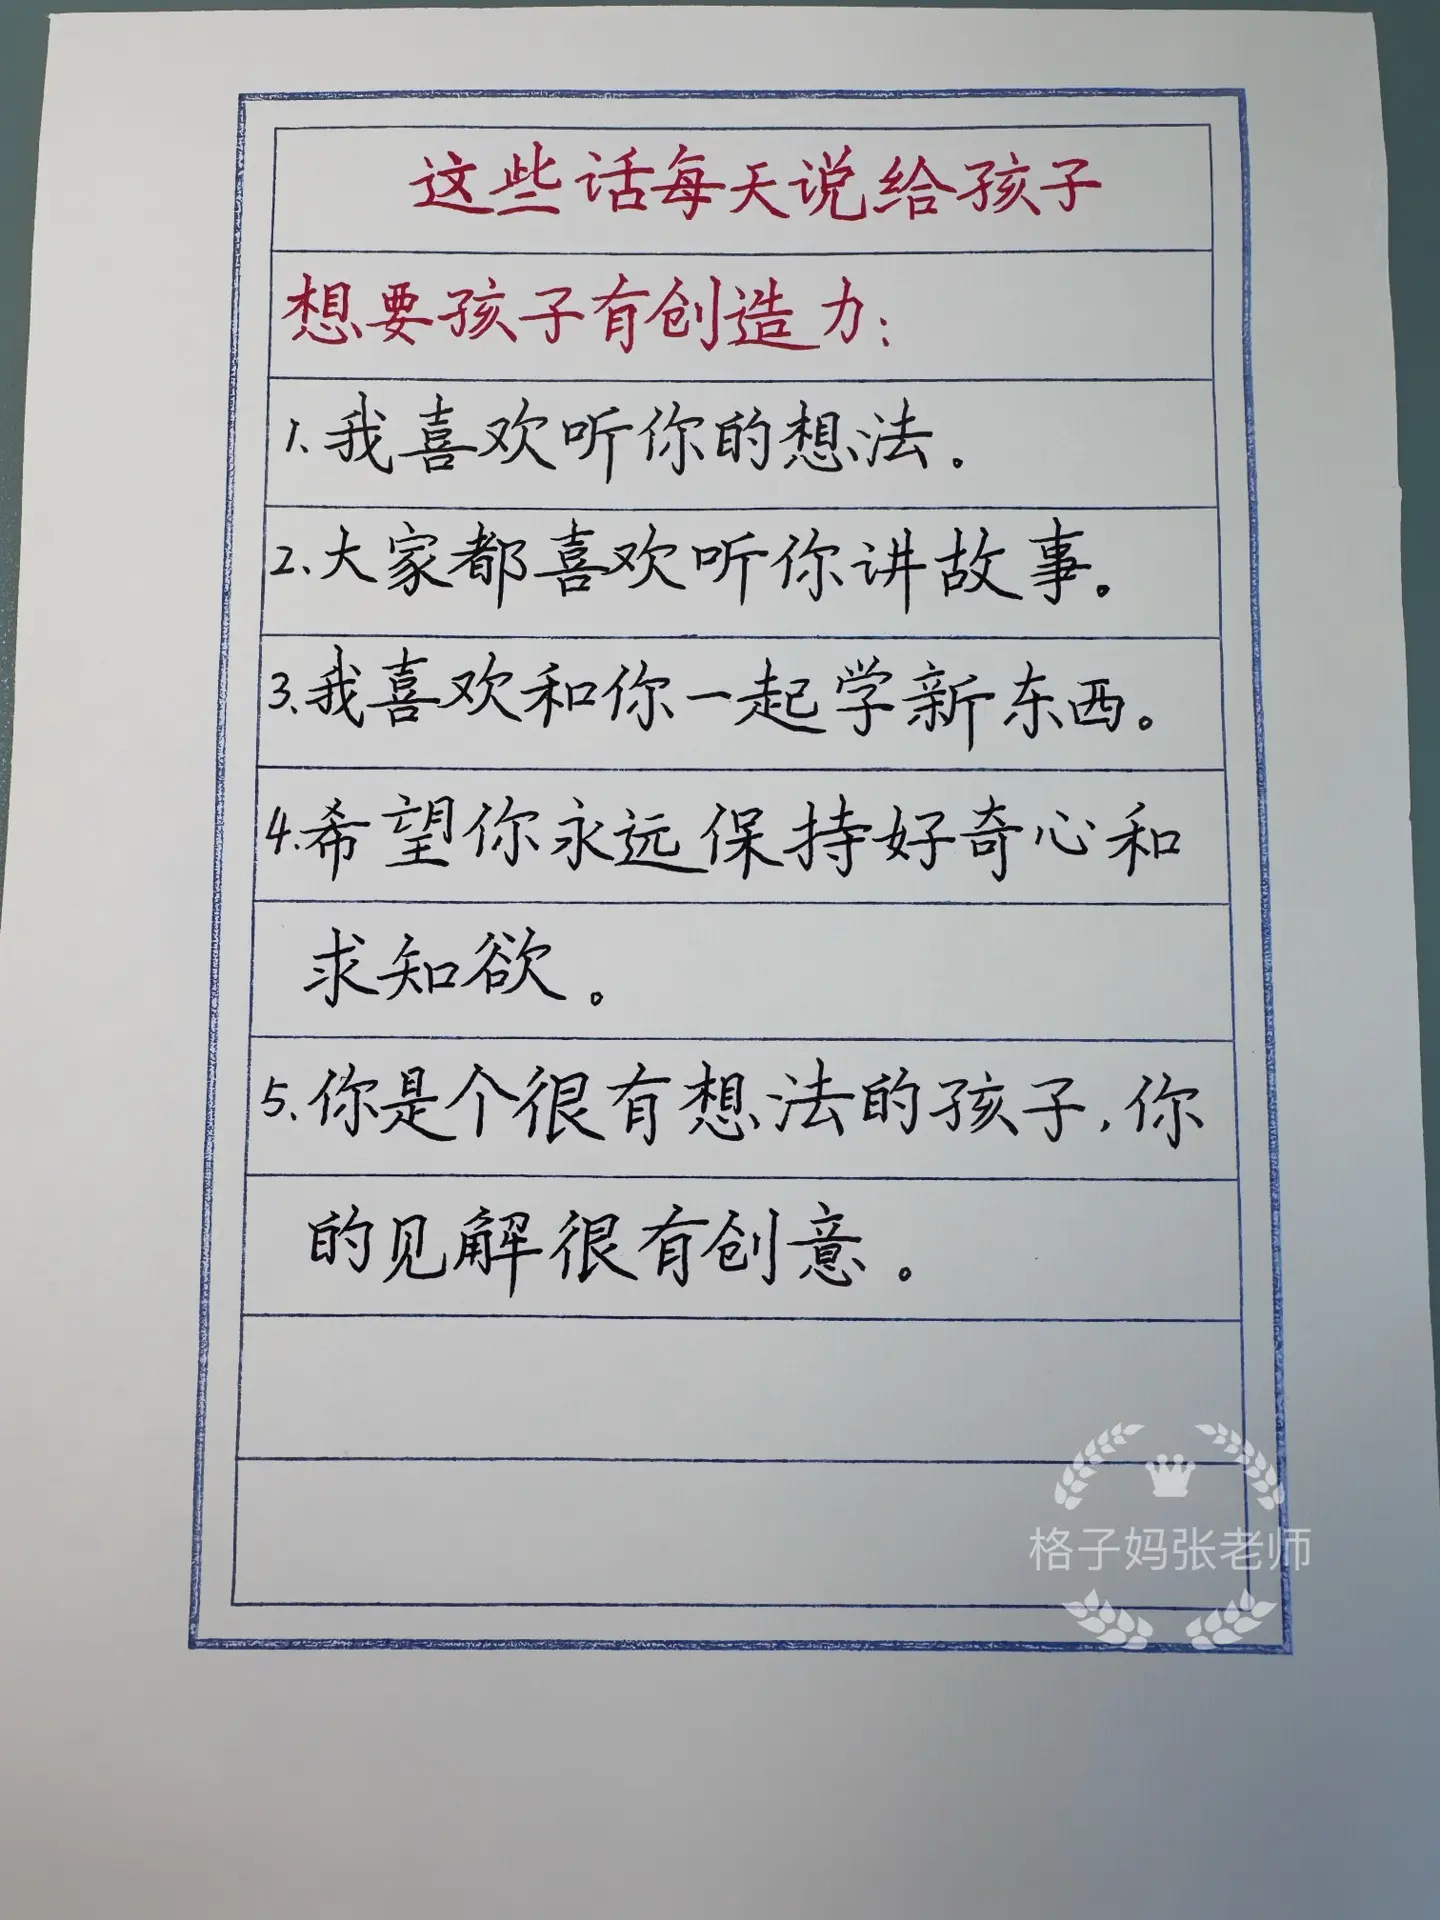 这些话每天说给孩子
想要孩子有创造力:
1.我喜欢听你的想法。
2.大家都喜欢听你讲故事。
3.我喜欢和你一起学新东西。
4.希望你永远保持好奇心和
求知欲。
5.你是个很有想法的孩子,你
的见解很有创意。
格子妈张老师